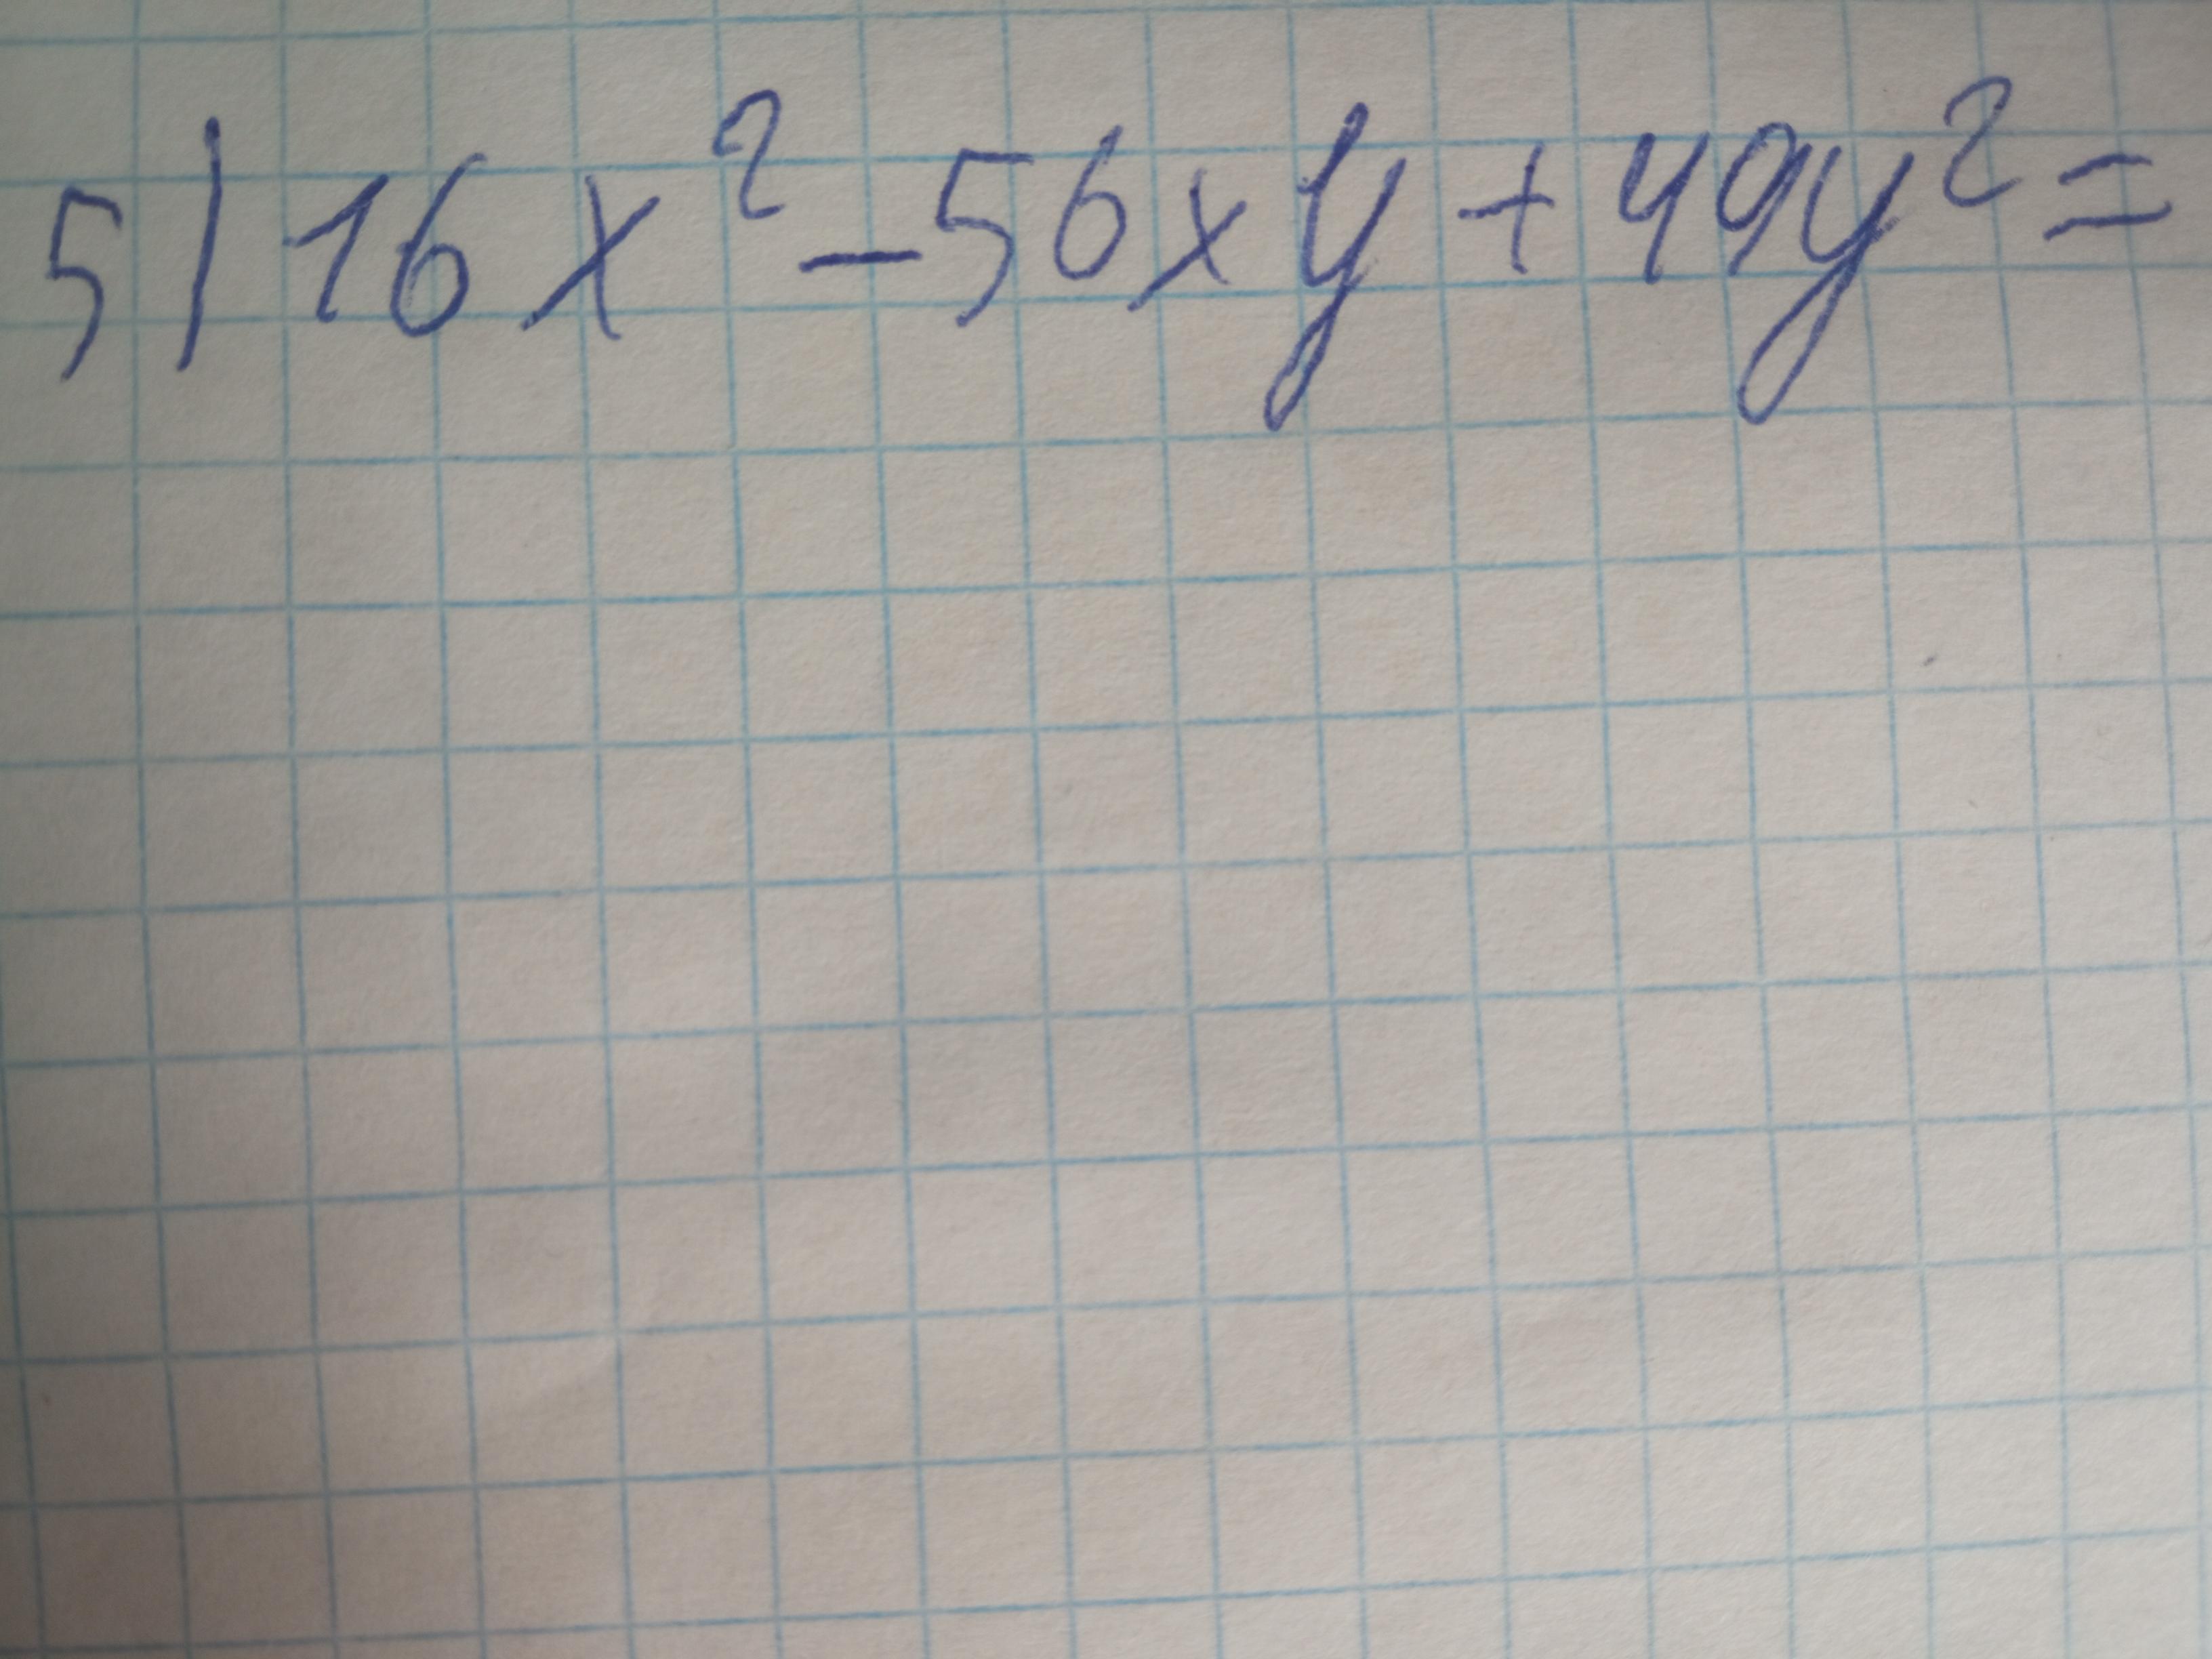 5) 16x² - 56xy + 49y² =